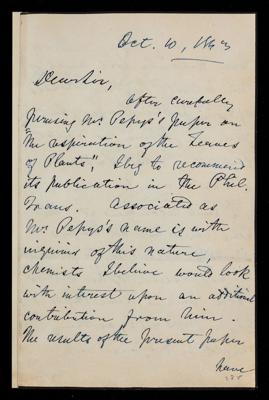 Oct. 10, 1843
Dear Sir,
After carefully
perusing Mr. Pepys's paper on
"The respiration of the Leaves
of Plants", I beg to recommend
its publication in the Phil.
Trans. Associated as
Mr. Pepys's name is with
inquiries of this nature,
chemists I believe would look
with interest upon an additional
contribution from him.
The results of the present paper
have